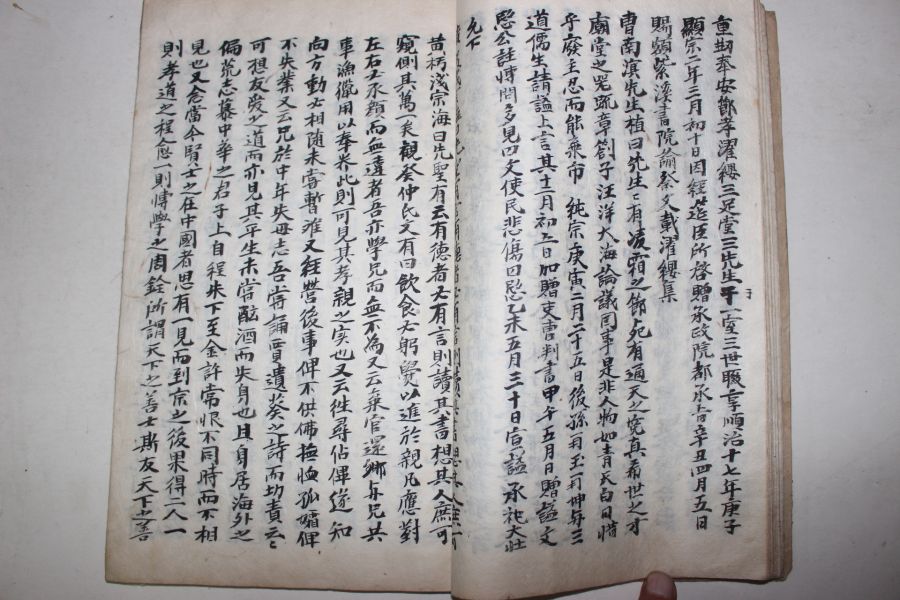 重刱奉安節孝濯纓三足堂三先生于一室三世聯享順治十七年庚子
顯宗二年三月初十日因經筵臣所啓贈承政院都承旨辛丑四月五日
賜額紫溪書院諭祭文載濯纓集
曺南溟先生植曰先生生有凌霜之節死有通天之寃眞希世之才
廟堂之器疏章劄子汪洋大海論議國事是非人物如靑天白日惜
乎廢主忍而能棄市 純宗庚寅二月二十五日後孫
道儒生請諡上言其十一月初六日加贈吏曹判書甲午五月日贈諡文
愍公註博聞多見曰文使民悲傷曰愍乙未五月三十日宣諡承
允下
黃
宗海曰先聖有云有德者必有言則讀其書想其人庶可
窺測其萬一矣觀癸仲氏文有曰飮食必躬
以進於親凡應對
左右必承顏而無違者吾亦學兄而無不爲又云棄官還鄕与兄共
事漁獵用以奉養此則可見其孝親之實也又云
向方動必相隨未嘗暫離又經營後事俾不供佛撫恤孤孀俾
不失業又云兄於中年失母志吾嘗誦
遺
之詩而切責云云
可想友愛之道而亦見其平生未嘗酗酒而失身也且身居海外之
偏荒志慕中華之君子上自程朱下至金許常恨不同時而不相
見也又念當今賢士之在中國者思有一見而到京之後果得二人一
則孝道之程愈一則博學之周銓所謂天下之善士斯友天下之善